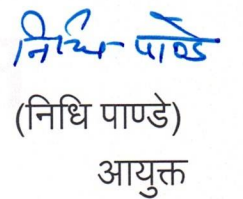 निधि पाण्डे
(निधि पाण्डे)
आयुक्त